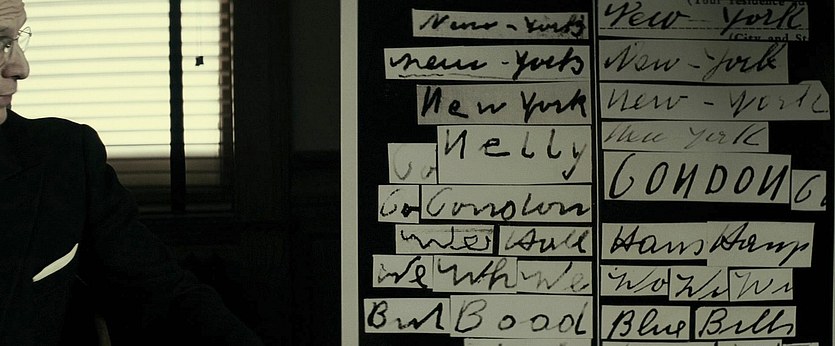 New-York
New-York
New York
Nelly
Co
Co Condon
Hall
We Wh We
But Boad
(Your
New York
(City and St
New-York
New-York
New York
CONDON
Hans Haup
Wo We Wi
Blue Bells